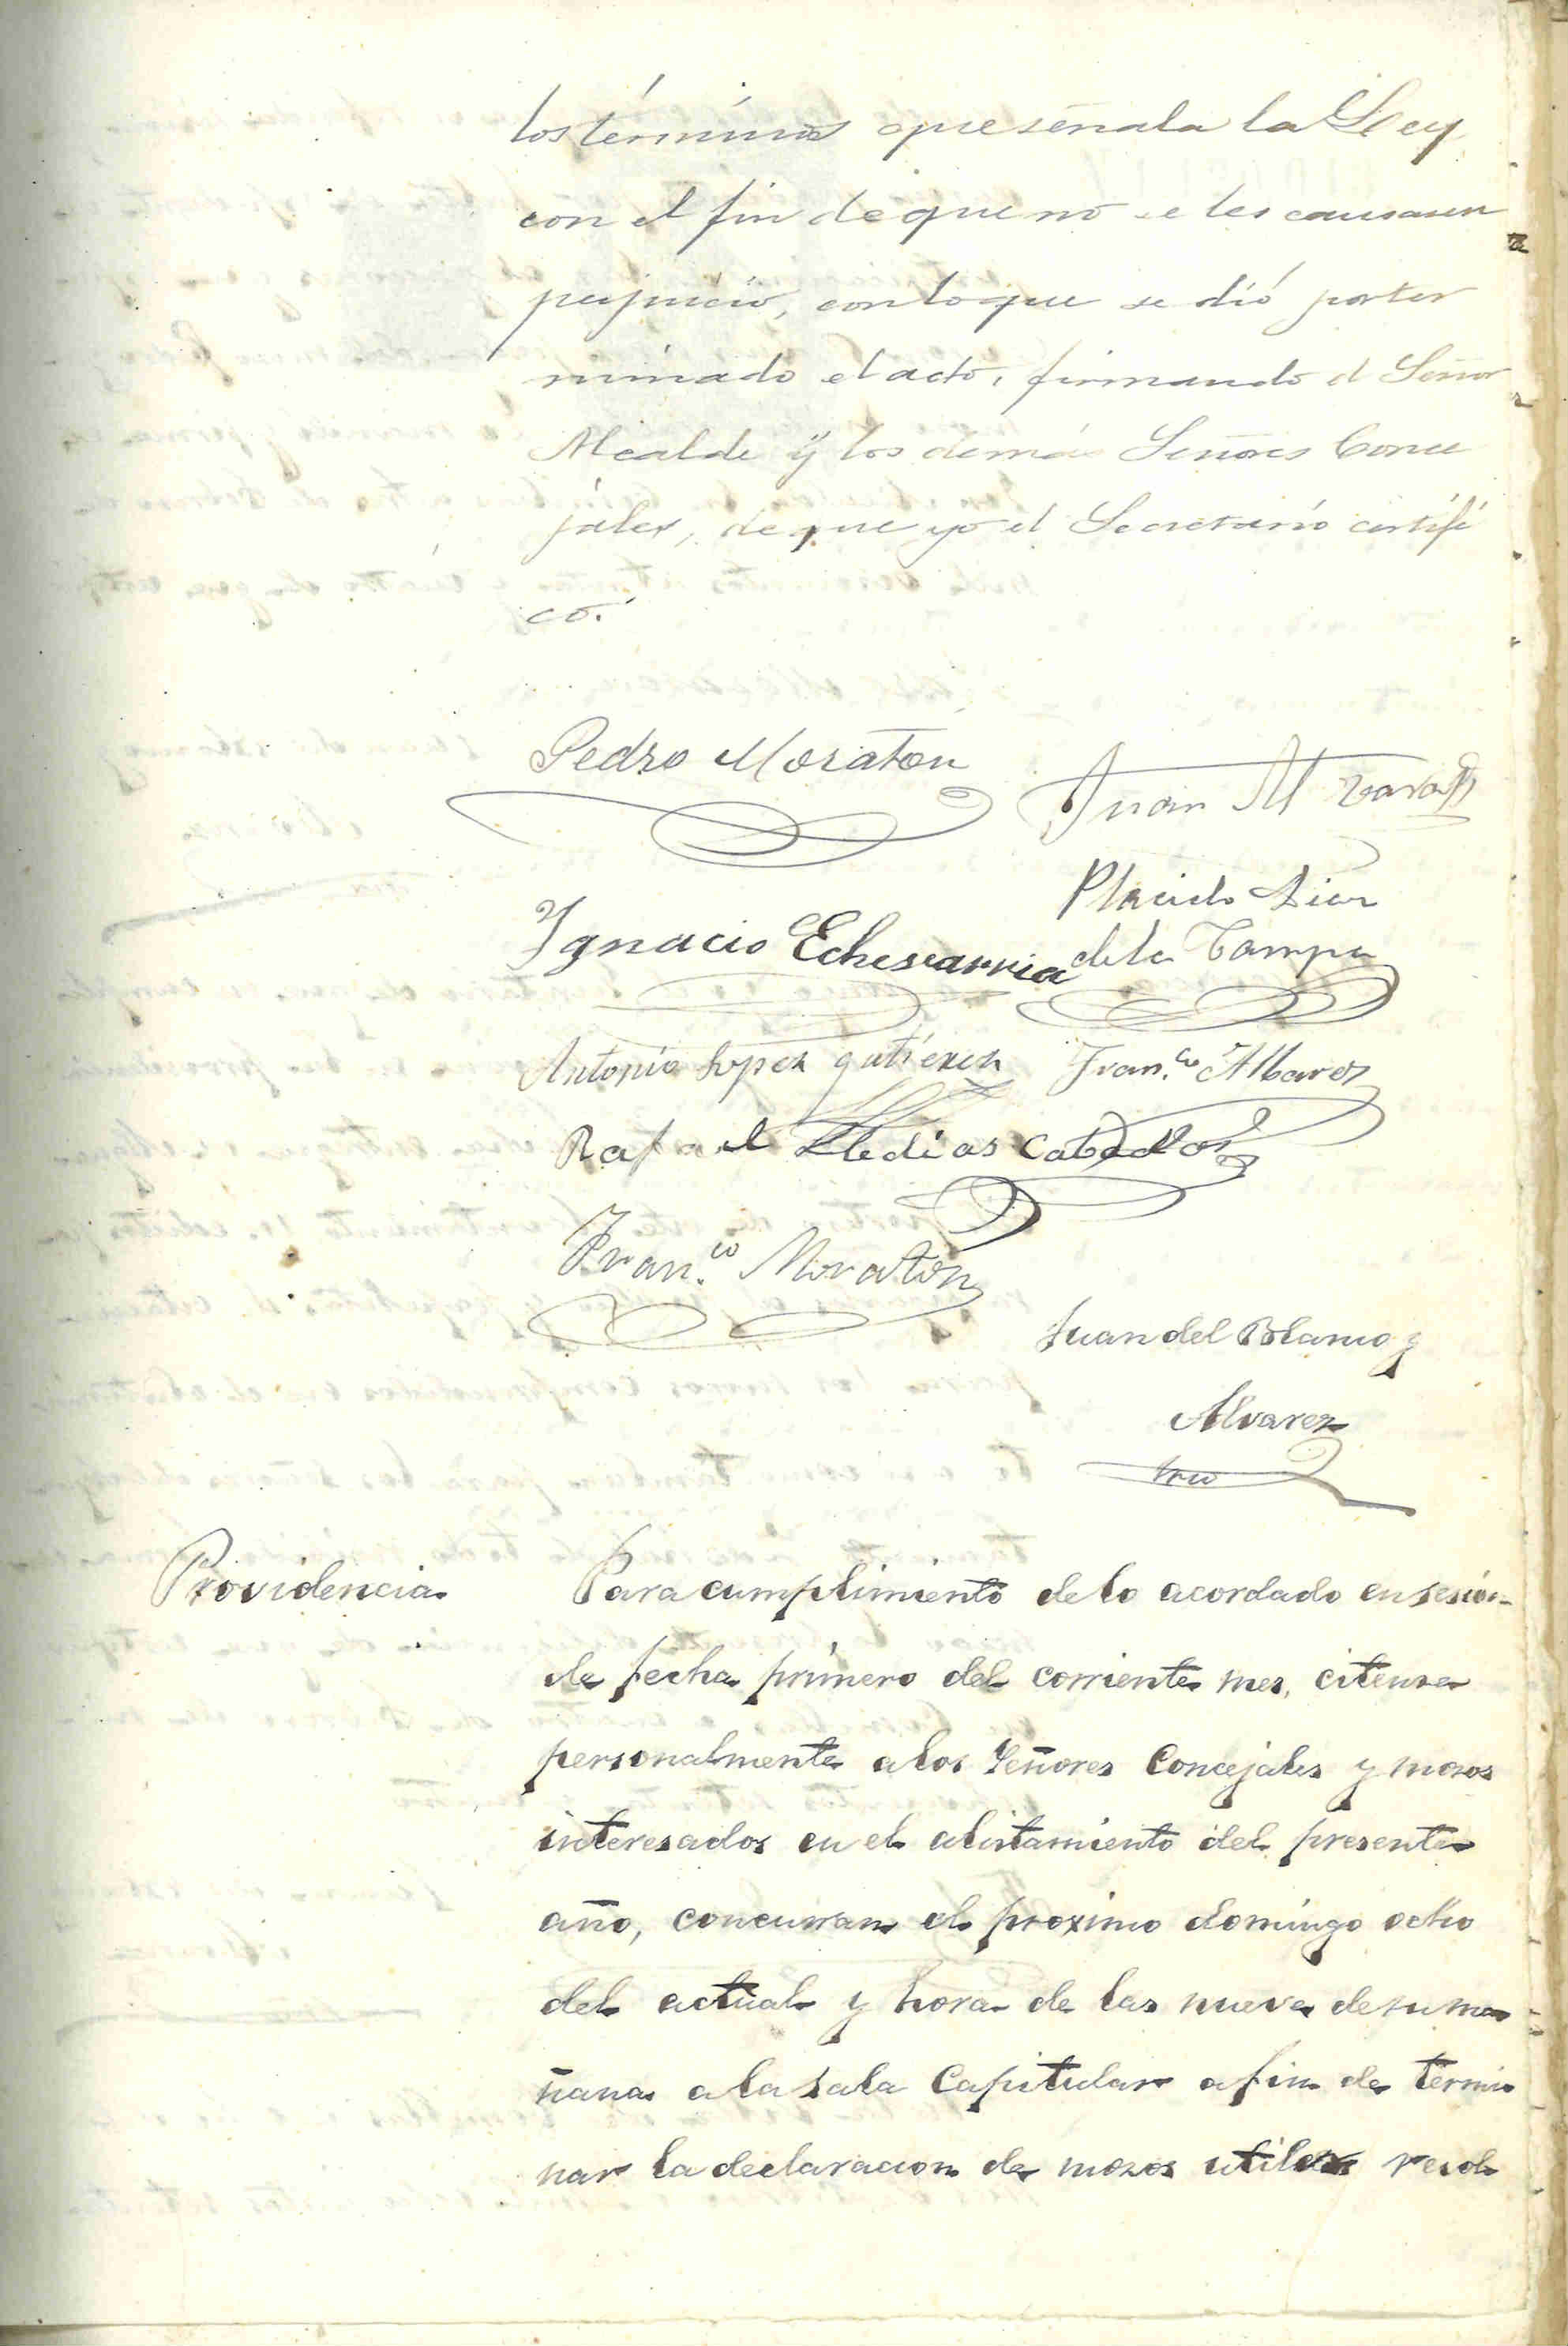 los términos que señala la Ley
con el fin de que no se les causasen
perjuicio, con lo que se dió por ter
minado el acto, firmando el Señor
Alcalde y los demás Señores Conce
jales, de que yo el Secretario certifi
co.
Pedro Moratón
Juan Al
Ignacio Echevarria
Placido Diaz
de la Campa
Antonio Lopez gutierez
Fran.co Albarez
Rafael Lledias Cabadlos
Fran.co Moratón
Juan del Blanco y
Alvarez
Srio
Providencia
Para cumplimiento de lo acordado en sesión
de fecha primero del corriente mes, citense
personalmente a los Señores Concejales y mozos
interesados en el alistamiento del presente
año, concurran el proximo domingo ocho
del actual y hora de las nueve de su ma
ñana a la Sala Capitular a fin de termi
nar la declaracion de mozos utiles resol